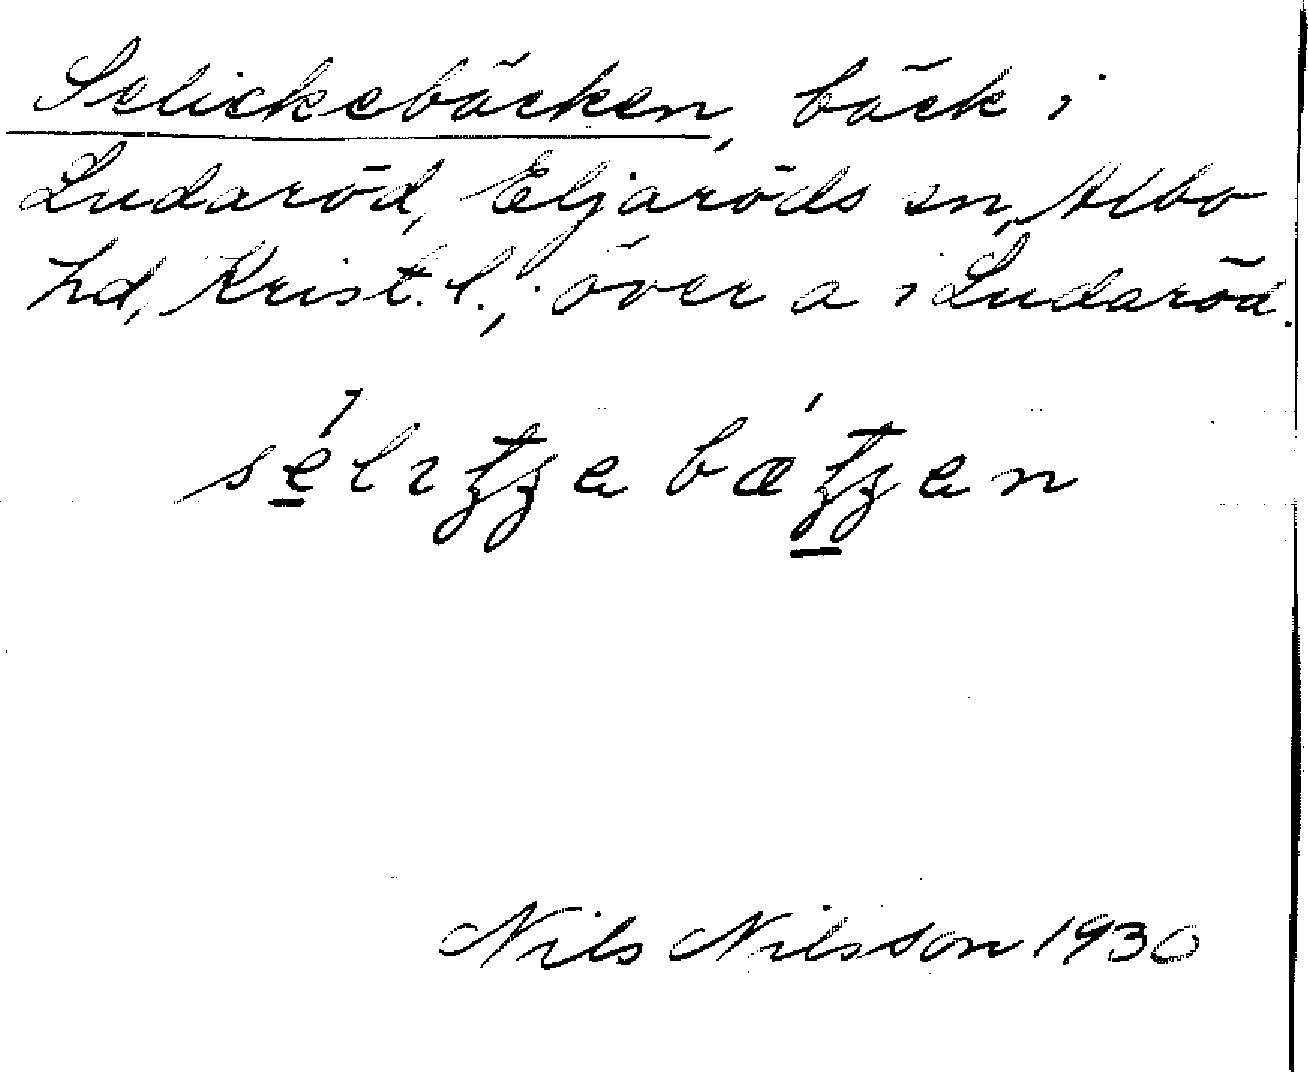 Selickebäcken, bäck i
Ludaröd, Eljaröds sn, Albo
hd, Krist. l., över a i Ludaröd.
Nils Nilsson 1930